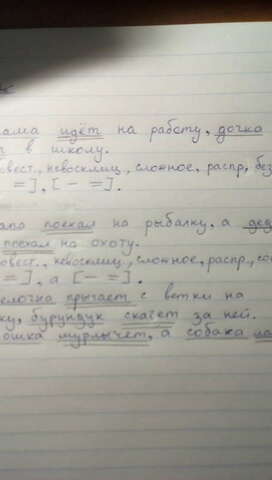 ама идёт на работу, дочка
в школу.
овест., невосклиц., сложное, распр., без
=], [ – =].
апа поехал на рыбалку, а дед
поехал на охоту.
овест., невосклиц., сложное, распр., со
=], а [ – =].
елочка прыгает с ветки на
ку, бурундук скачет за ней.
ошка мурлычет, а собака ла